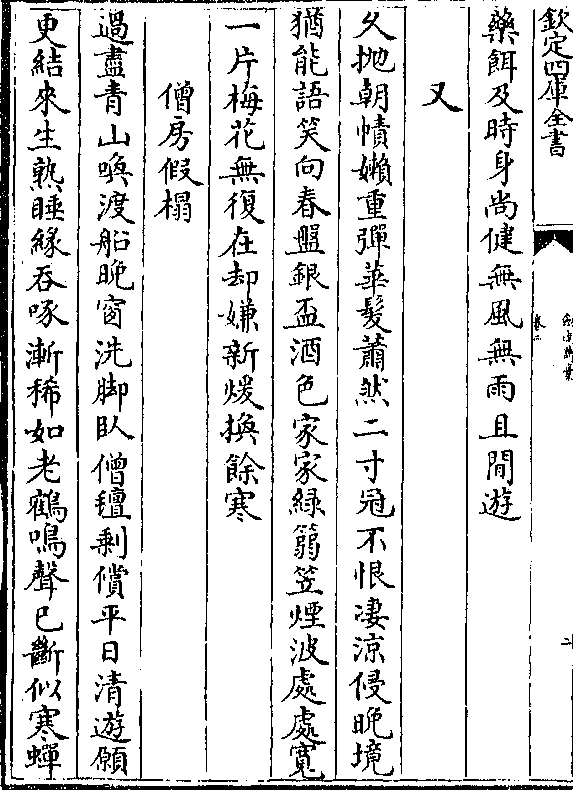 欽定四庫全書
卷二
藥餌及時身尚健無風無雨且閒遊
又
久拋朝幘嬾重彈華髮蕭然二寸冠不恨淒涼侵晚境
猶能語笑向春盤銀盃酒色家家綠篛笠煙波處處寬
一片梅花無復在却嫌新煖換餘寒
僧房假榻
過盡青山喚渡船晚窗洗脚臥僧氈剩償平日清遊願
更結來生熟睡緣吞啄漸稀如老鶴鳴聲已斷似寒蟬